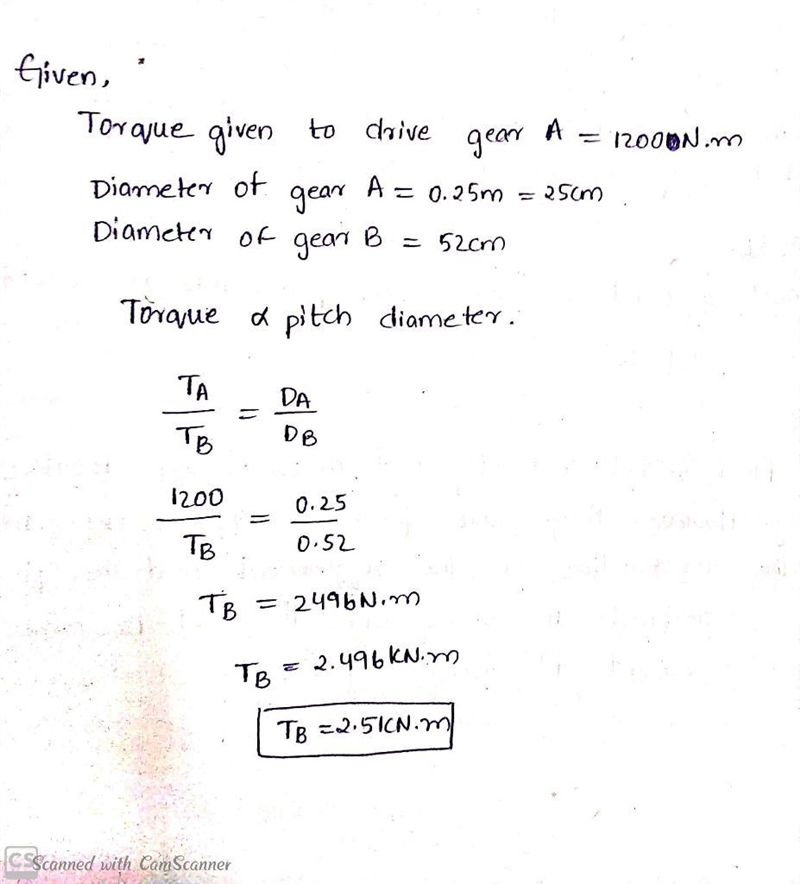 Given,
Torque given to drive gear A = 1200 N.m
Diameter of gear A = 0.25m = 25cm .
Diameter of gear B = 52cm
Torque α pitch diameter.
TA / TB = DA / DB
1200 / TB = 0.25 / 0.52
TB = 2496N.m
TB = 2.496 KN.m
TB = 2.5KN.m
CS Scanned with CamScanner